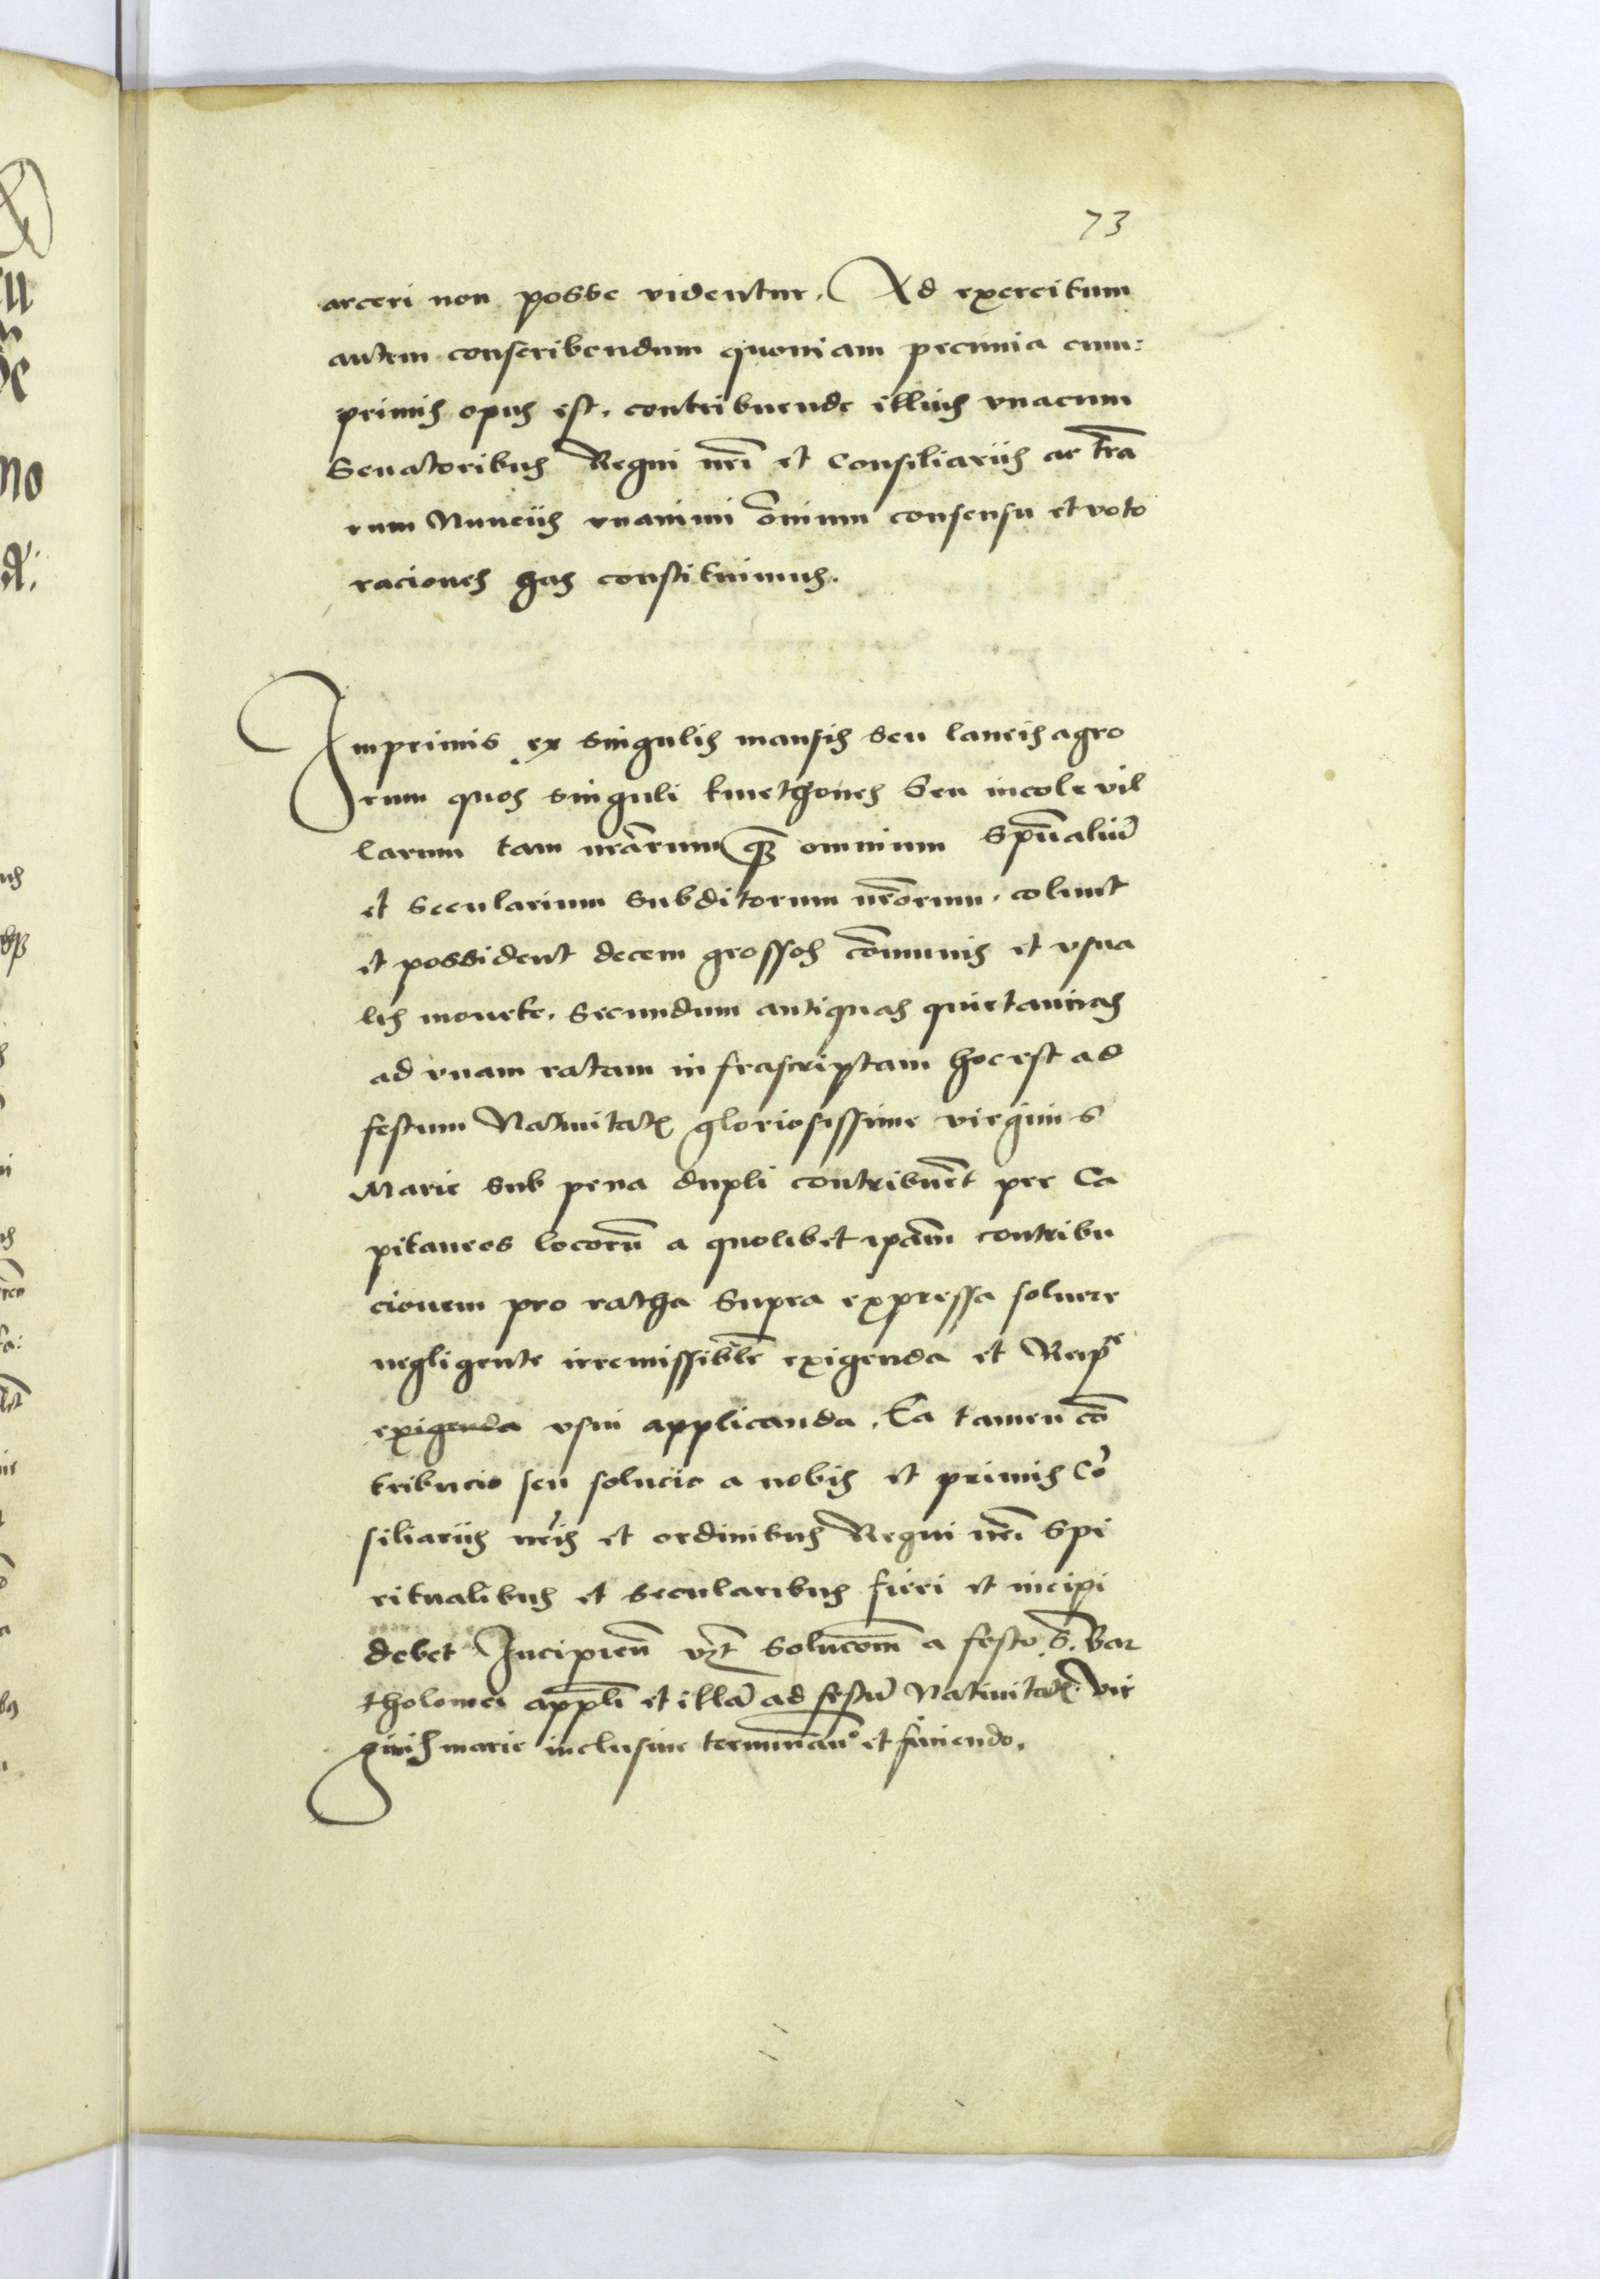 73
arceri non posse videntur. Ad exercitum
autem conscribendum quoniam pecunia cum:
primis opus est. contribuende illius vnacum
Senatoribus Regni nrī et Consiliariis ac trā
rum Nunciis vnanimi ōnium consensu et voto
raciones has constituimus.
Imprimis ex singulis mansis seu laneis agro
rum quos singuli kmethones Seu incole vil
larum tam nrārum q̄ omnium Spūaliū
et Secularium Subditorum nrōrum. colunt
et possident decem grossos cōmunis et vsua
lis monete. Secundum antiquas quietancias
ad vnam ratam infrascriptam hoc est ad
festum Natiuitatꝭ gloriosissime virginis
Marie sub pena dupli contribuēt per Ca
pitaneos locorū a quolibet ipām contribu
cionem pro ratha Supra expressa soluere
negligente irremissiblr̄ exigenda et Reip̄ce
exigenda vsui applicanda. Ea tamen cō
tribucio seu solucio a nobis et primis Cō
siliariis nrīs et ordinibus Regni nrī Spi
ritualibus et Secularibus fieri et incipi
debet Incipien̄ vꝫt Soluc̄om̄ a festo S. Bar
tholomei appl̄i et illā ad festū Natiuitatꝭ Vir
ginis marie inclusiue terminan̄o et finiendo.